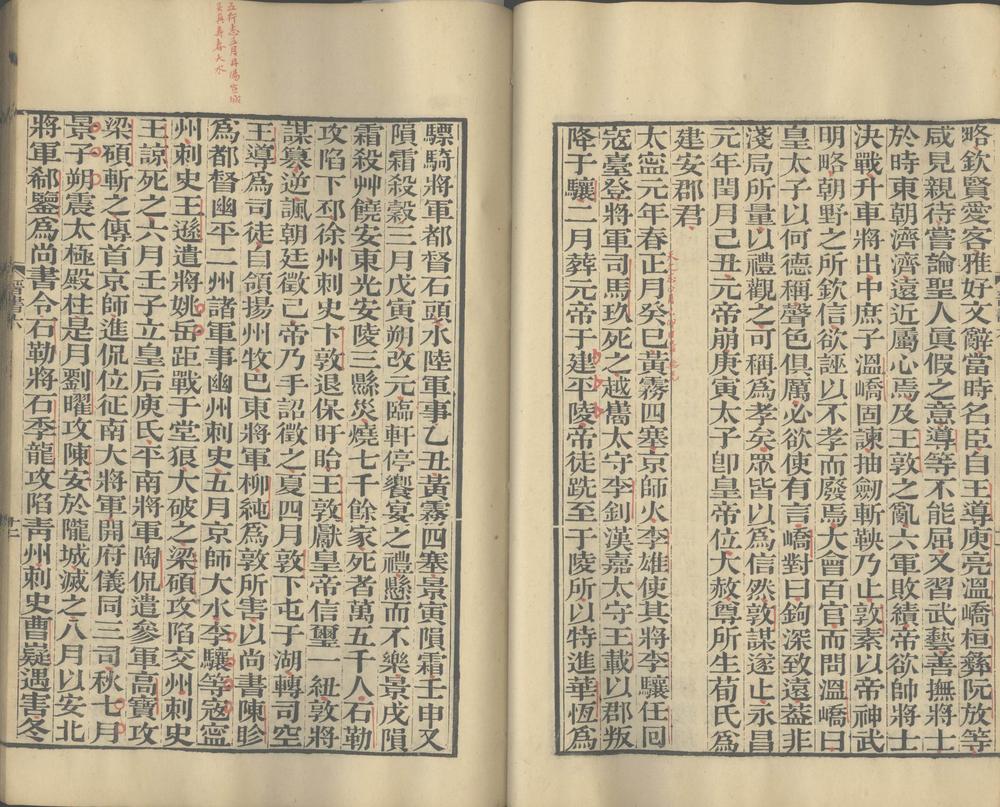 略欽賢愛客雅好文辭當時名臣自王導庾亮溫嶠桓彝阮放等
咸見親待嘗論聖人眞假之意導等不能屈又習武藝善撫將士
於時東朝濟濟遠近屬心焉及王敦之亂六軍敗績帝欲帥將士
決戰升車將出中庶子溫嶠固諫抽劍斬鞅乃止敦素以帝神武
明略朝野之所欽信欲誣以不孝而廢焉大會百官而問溫嶠曰
皇太子以何德稱聲色俱厲必欲使有言嶠對曰鉤深致遠蓋非
淺局所量以禮觀之可稱爲孝矣眾皆以爲信然敦謀遂止永昌
元年閏月己丑元帝崩庚寅太子卽皇帝位大赦尊所生荀氏爲
建安郡君
太寧元年春正月癸巳黃霧四塞京師火李雄使其將李驤任回
寇臺登將軍司馬玖死之越巂太守李釗漢嘉太守王載以郡叛
降于驤二月葬元帝于建平陵帝徒跣至于陵所以特進華恆爲
五行志五月丹陽宣城
吳興壽春大水
驃騎將軍都督石頭水陸軍事乙丑黃霧四塞景寅隕霜壬申又
隕霜殺穀三月戊寅朔改元臨軒停饗宴之禮懸而不樂景戌隕
霜殺艸饒安東光安陵三縣災燒七千餘家死者萬五千人石勒
攻陷下邳徐州刺史卞敦退保盱眙王敦獻皇帝信璽一紐敦將
謀篡逆諷朝廷徵己帝乃手詔徵之夏四月敦下屯于湖轉司空
王導爲司徒自領揚州牧巴東將軍柳純爲敦所害以尚書陳眕
爲都督幽平二州諸軍事幽州刺史五月京師大水李驤等寇寧
州刺史王遜遣將姚岳距戰于堂狼大破之梁碩攻陷交州刺史
王諒死之六月壬子立皇后庾氏平南將軍陶侃遣參軍高寶攻
梁碩斬之傳首京師進侃位征南大將軍開府儀同三司秋七月
景子朔震太極殿柱是月劉曜攻陳安於隴城滅之八月以安北
將軍郗鑒爲尚書令石勒將石季龍攻陷靑州刺史曹嶷遇害冬